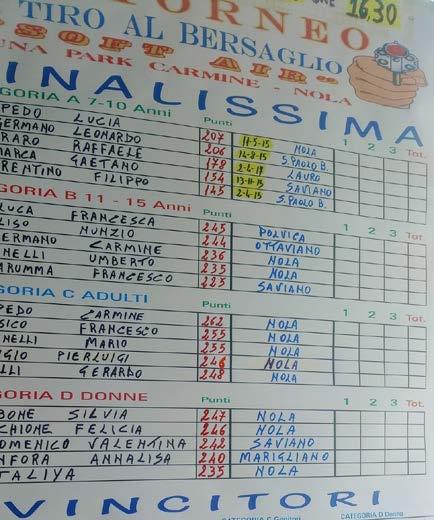 ORE 16,30
TORNEO
TIRO AL BERSAGLIO
SOFT AIR
UNA PARK CARMINE - NOLA
INALISSIMA
GORIA A 7-10 Anni Punti 1 2 3 Tot.
PEDO LUCIA 207 11-5-15 NOLA
GERMANO LEONARDO 206 14-8-15 S. PAOLO B.
RARO RAFFAELE 178 2-4-17 LAURO
MARCA GAETANO 154 13-11-15 SAVIANO
RENTINO FILIPPO 145 2-4-15 S. PAOLO B.
GORIA B 11 - 15 Anni Punti 1 2 3 Tot.
LUCA FRANCESCA 245 POLVICA
LISO NUNZIO 244 OTTAVIANO
ERMANO CARMINE 236 NOLA
NELLI UMBERTO 235 NOLA
ARUMMA FRANCESCO 225 SAVIANO
GORIA C ADULTI Punti 1 2 3 Tot.
PEDO CARMINE 262 NOLA
SICO FRANCESCO 255 NOLA
NELLI MARIO 255 NOLA
GIO PIERLUIGI 246 NOLA
LLI GERARDO 248 NOLA
GORIA D DONNE Punti 1 2 3 Tot.
BONE SILVIA 247 NOLA
CHIONE FELICIA 246 NOLA
OMENICO VALENTINA 242 SAVIANO
NFORA ANNALISA 240 MARIGLIANO
TALIYA 235 NOLA
VINCITORI
CATEGORIA C Genitori CATEGORIA D Donne